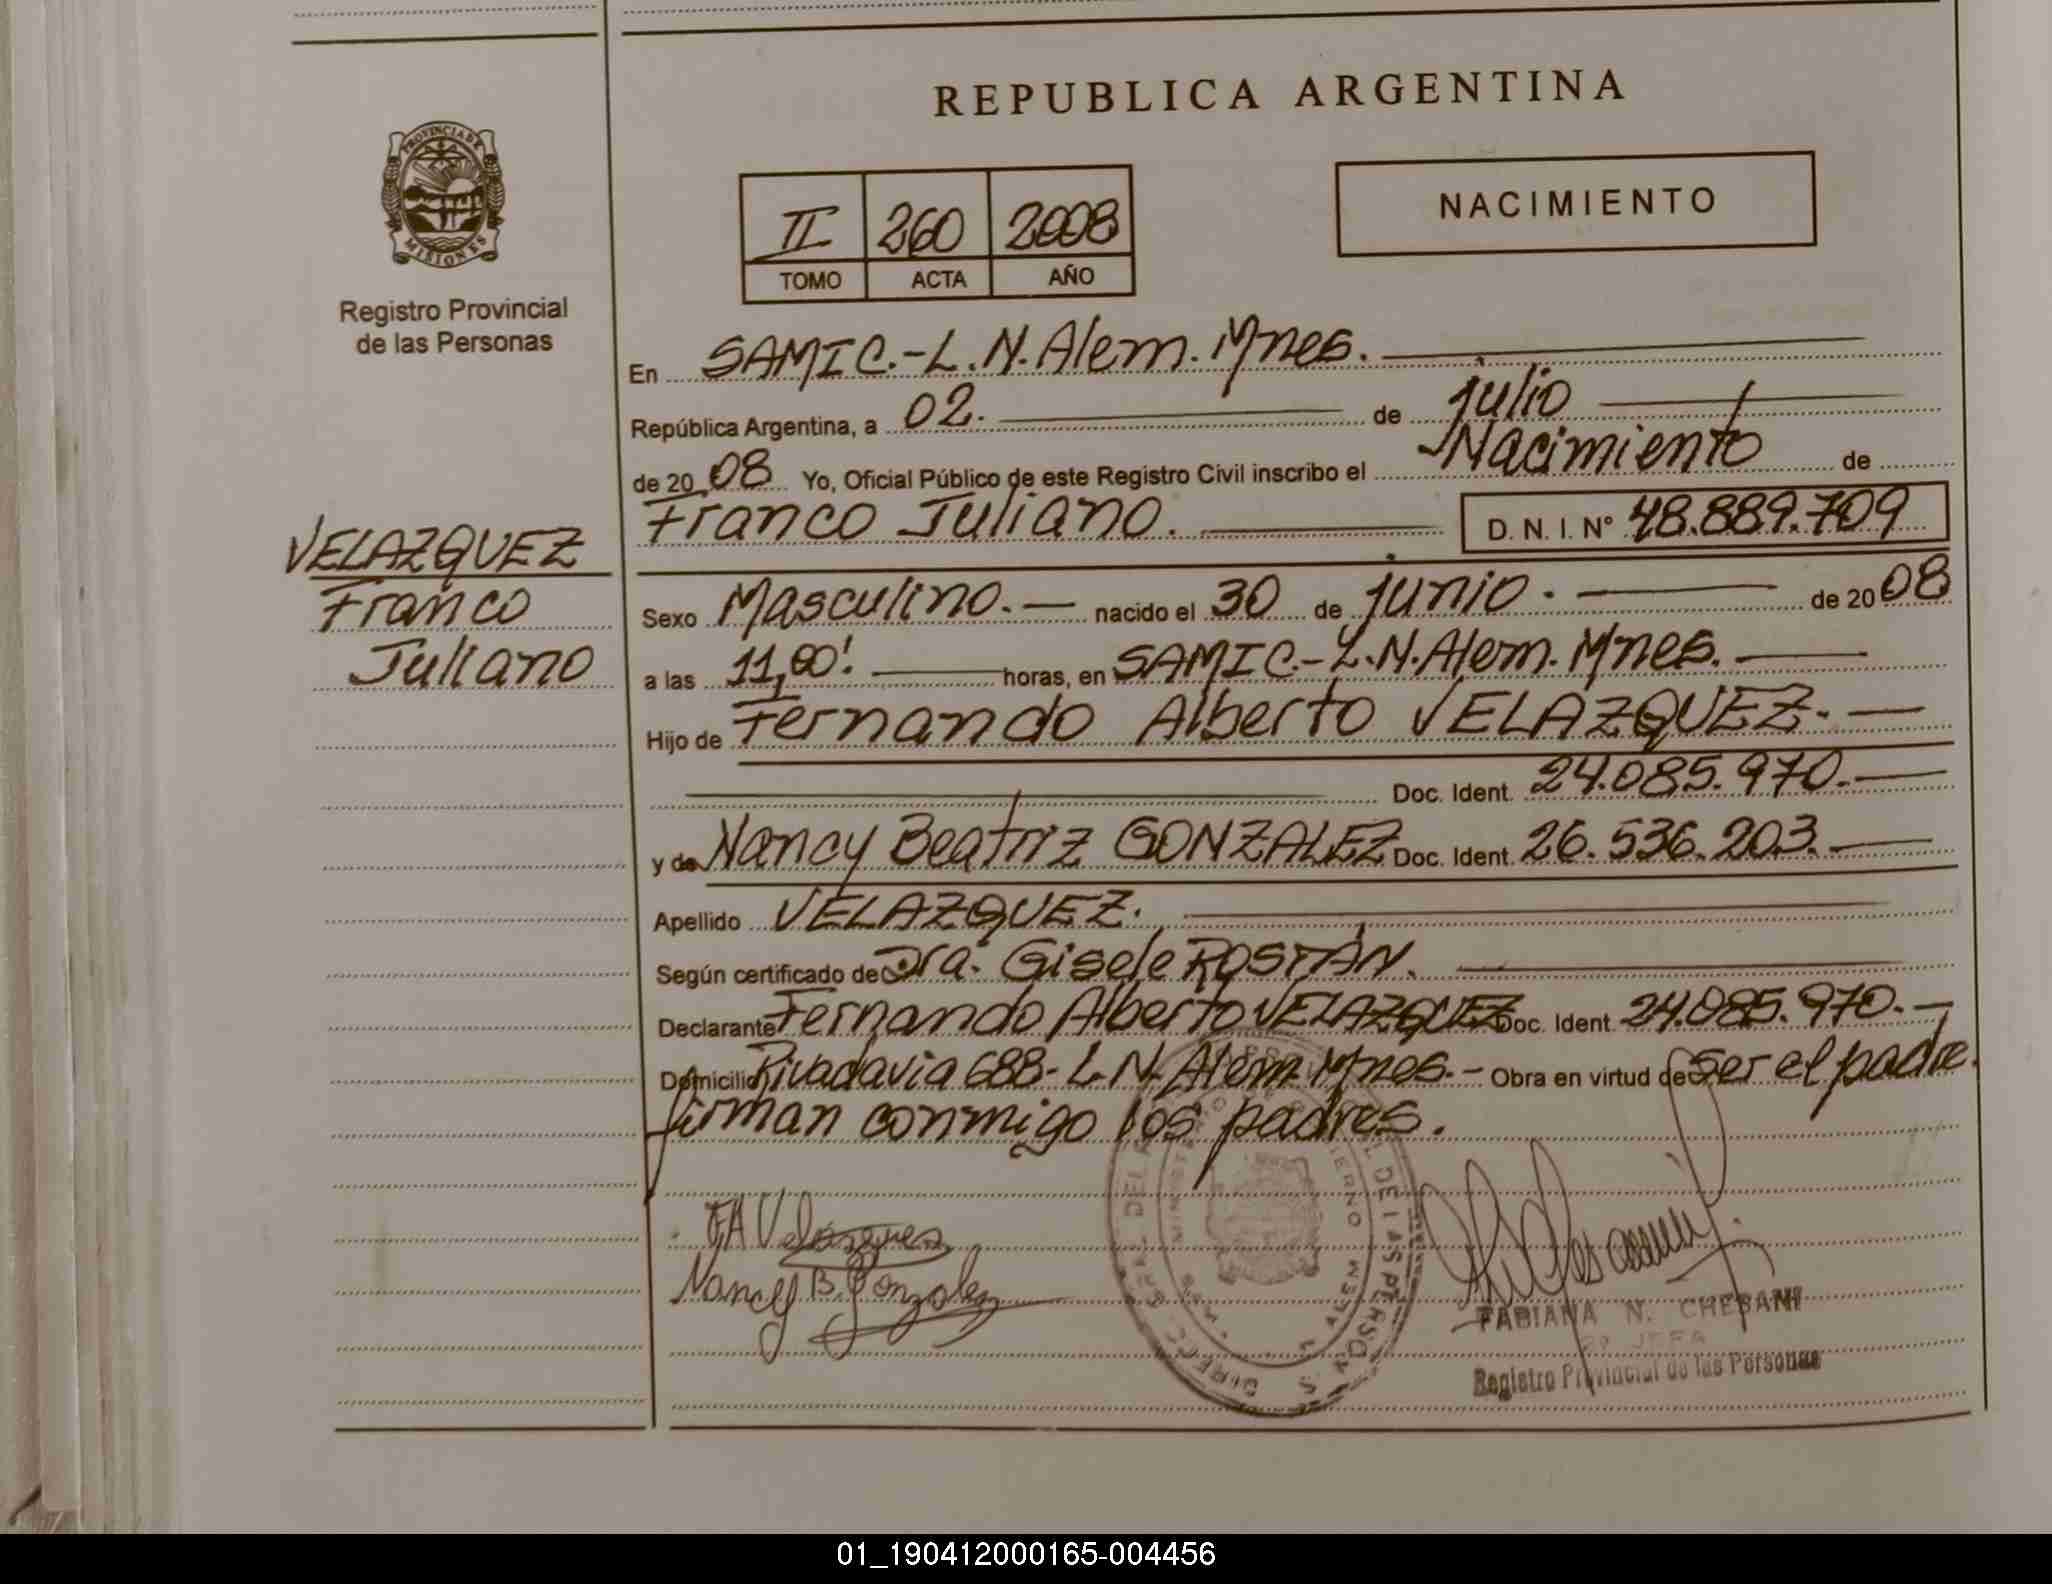 REPUBLICA ARGENTINA
PROVINCIA DE
MISIONES
Registro Provincial
de las Personas
II 260 2008
TOMO ACTA AÑO
NACIMIENTO
En SAMIC.-L.N.Alem.Mnes.
República Argentina, a 02. de julio
de 20 08 Yo, Oficial Público de este Registro Civil inscribo el Nacimiento de
Franco Juliano. D. N. I. Nº 48.889.709
VELAZQUEZ
Franco
Juliano
Sexo Masculino.- nacido el 30 de junio. de 20 08
a las 11,00'. horas, en SAMIC.-L.N.Alem.Mnes.
Hijo de Fernando Alberto VELAZQUEZ.-
Doc. Ident. 24.085.970.-
y de Nancy Beatriz GONZALEZ Doc. Ident. 26.536.203.-
Apellido VELAZQUEZ.
Según certificado de Dra. Gisele ROSTÁN.
Declarante Fernando Alberto VELAZQUEZ Doc. Ident. 24.085.970.-
Domicilio Rivadavia 688-L.N.Alem.Mnes.- Obra en virtud de ser el padre.
firman conmigo los padres.
FA Velazquez
Nancy B. Gonzalez
FABIANA N. CHESANI
JEFA
Registro Provincial de las Personas
01_190412000165-004456